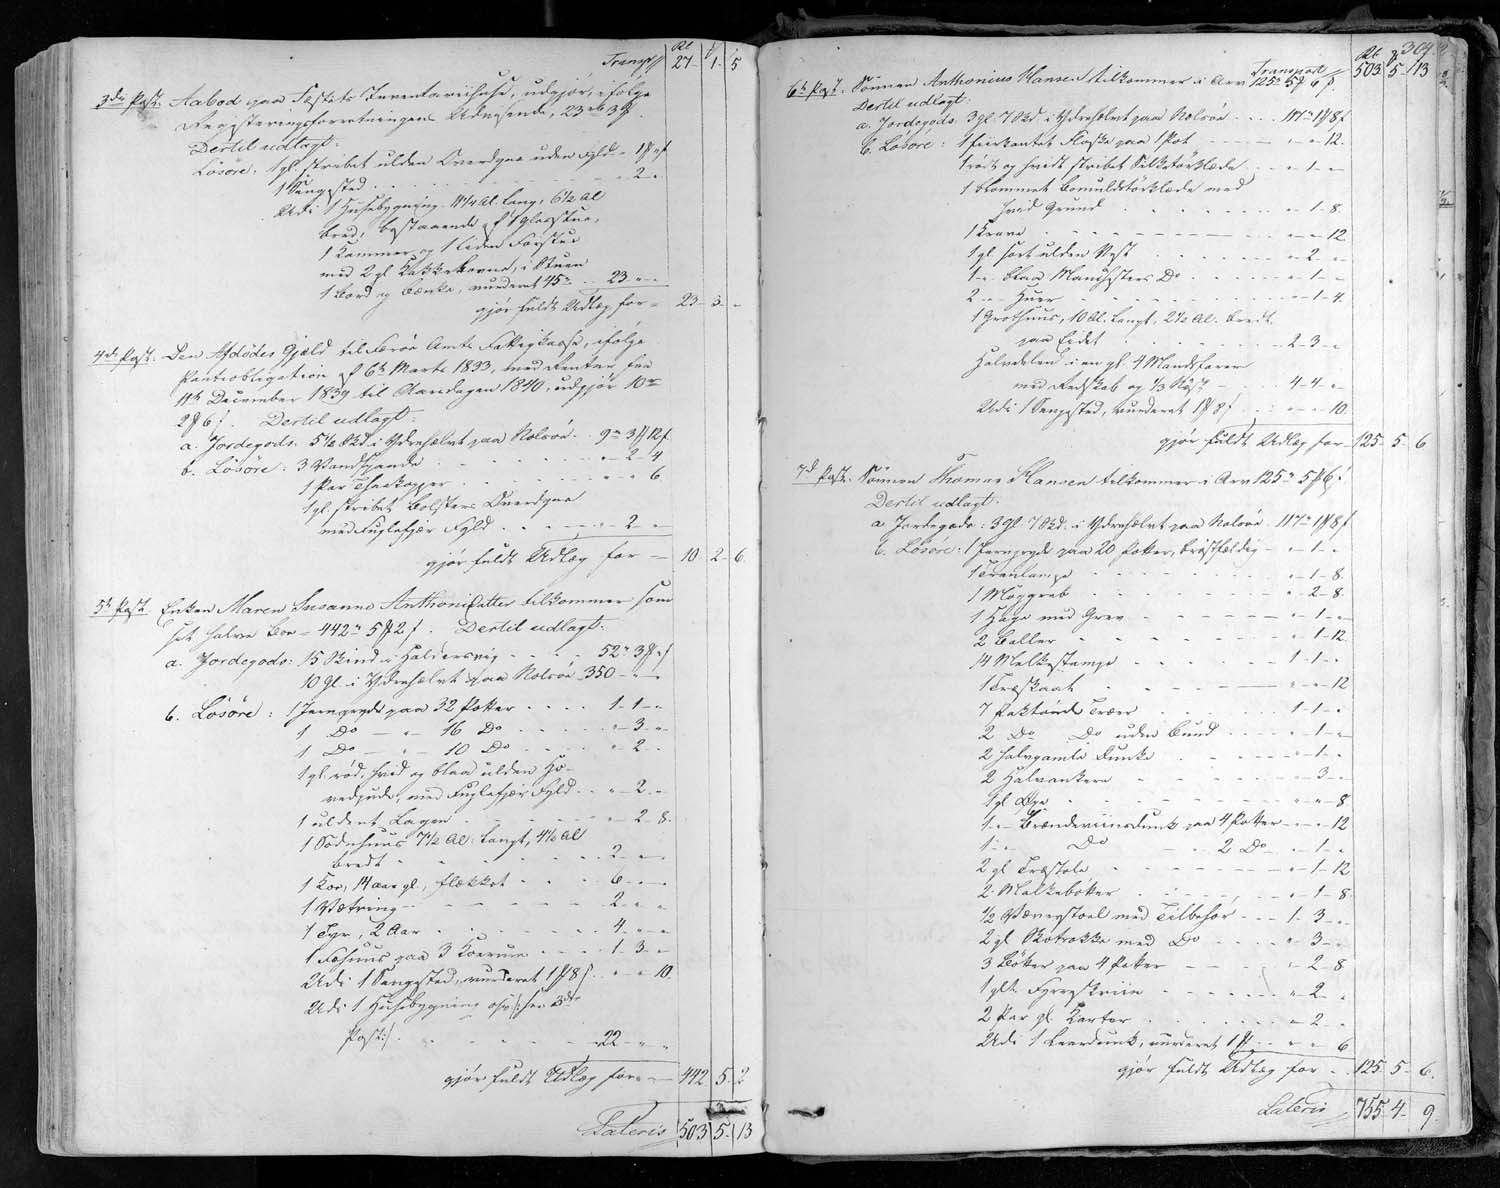 Rd. 
Transp. 27 1 5
3die Post. Aabod paa Fæstets Inventariihuse, udgjør, ifølge
Registeringsforretningens Udvisende, 23 rb 3 ß.
Dertil udlagt:
Løsøre: 1 gl. stribet ulden Overdyne uden Fyld - 1 ß "
1 Sengested - 2 -
Udi 1 Huusbygning 11¼ Al. lang, 6½ Al
bred, bestaaende af 1 Glasstue,
1 Kammer og 1 liden Forstue
med 2 gl. Kakkelovne, i Stuen
1 Bord og Bænke, vurderet 45 rd 23 - -
gjør fuldt Udlæg for - 23 - 3 -
4de Post. Den Afdødes Gjæld til Færøe Amts Fattigkasse, ifølge
Pantobligation af 6te Marts 1833, med Renter fra
11te December 1839 til Aarsdagen 1840, udgjør 10 rd
2 ß 6 s. Dertil udlagt:
a. Jordegods: 5½ Skd. i Ydrehælvt paa Nolsøe - 9 rd 3 ß 12 s
b. Løsøre: 3 Vandspande - 2 - 4
1 Par Theekopper - " - 6
1 gl. stribet Bolsters Overdyne
med Fuglefjær Fyld - 2 -
gjør fuldt Udlæg for - 10 - 2 - 6
5te Post. Enken Maren Susanne Anthonidatter tilkommer som
sit halve Boe - 442 rd 5 ß 2 s. Dertil udlagt:
a. Jordegods: 15 Skind i Haldersvig - 52 rd 3 ß " s
10 Gl. i Ydrehælvt paa Nolsøe - 350 - " -
b. Løsøre: 1 Jerngryde paa 32 Potter - 1 - 1 - "
1 Do - " - 16 Do - " - 3 - "
1 Do - " - 10 Do - " - 2 -
1 gl. rød, hvid og blaa ulden Ho-
vedpude, med Fuglefjær Fyld - " - 2 -
1 uldent Lagen - " - 2 - 8
1 Sødnhuus 7½ Al: langt, 4½ Al
bredt - 2 - " -
1 Koe, 14 aar gl., flækket - 6 - " -
1 Vætring - 2 - " -
1 Tyr, 2 Aar - 4 - " -
1 Fæhuus paa 3 Kørum - 1 - 3 - "
Udi 1 Sengested, vurderet 1 ß 8 s - " - " - 10
Udi 1 Huusbygning  3die
Post:/ - 22 - " - "
gjør fuldt Udlæg for - 442 5 2
Lateris 503 5 13
309
Rd. ß
Transport 503 5 13
6te Post. Sönnen Anthonius Hansen tilkommer i Arv 125 rd 5 ß 6 s.
Dertil udlagt:
a. Jordegods: 3 gl. 7 Skd. i Ydrehælvt paa Nolsøe - 117 rd 1 ß 8 s
b. Løsøre: 1 fiirkantet Flaske paa 1 Pot - " - " - 12
1 rødt og hvidt stribet Silketørklæde - " - 1 - "
1 blommet Bomuldstørklæde med
hvid Grund - " - 1 - 8
1 Krave - " - " - 12
1 gl. sort ulden Vest - " - 2 - "
1 - " - blaa Manchesters Do - " - 1 - "
2 - " - Huer - " - 1 - 4
1 Grothuus, 10 Al. langt, 2½ Al. bredt
paa Eidet - 2 - 3 - "
Halvdelen i en gl. 4 Mandsfarer
med Redskab og 1/3 Nøst - 4 - 4 - "
Udi 1 Sengested, vurderet 1 ß 8 s - " - " - 10
gjør fuldt Udlæg for - 125 - 5 - 6
7de Post. Sönnen Thomas Hansen tilkommer i Arv 125 rd 5 ß 6 s.
Dertil udlagt:
a. Jordegods: 3 gl. 7 Skd. i Ydrehælvt paa Nolsøe - 117 rd 1 ß 8 s
b. Løsøre: 1 Jerngryde paa 20 Potter, brøstfældig - " - 1 - "
1 Tranlampe - " - 1 - 8
1 Møggreb - " - 2 - 8
1 Hage med Grev - " - 1 - "
2 Baller - " - 1 - 12
14 Melkestampe - 1 - 1 - "
1 Træskaat - " - " - 12
7 Saltønde Træer - 1 - 1 - "
2 Do Do uden Bund - " - 1 - "
2 halvgamle Dunke - " - 1 - "
2 Halvankere - " - 3 - "
1 gl. - " - " - 8
1 - " - Brændeviinsdunk paa 4 Potter - " - " - 12
1 - " - Do - " - 2 Do - " - 1 - "
2 gl. Træstole - " - 1 - 12
2. Malkebøtter - " - 1 - 8
½ Væverstoel med Tilbehør - 1 - 3 - "
2 gl. Skotrokke med Do - " - 3 - "
3 Bøtter paa 4 Potter - " - 2 - 8
1 glt. Fyrreskriin - " - 2 - "
2 Par gl. Karter - " - 2 - "
Udi 1 Leerdunk, vurderet 1 ß - " - " - 6
gjør fuldt Udlæg for - 125 - 5 - 6
Lateris 755 - 4 - 9